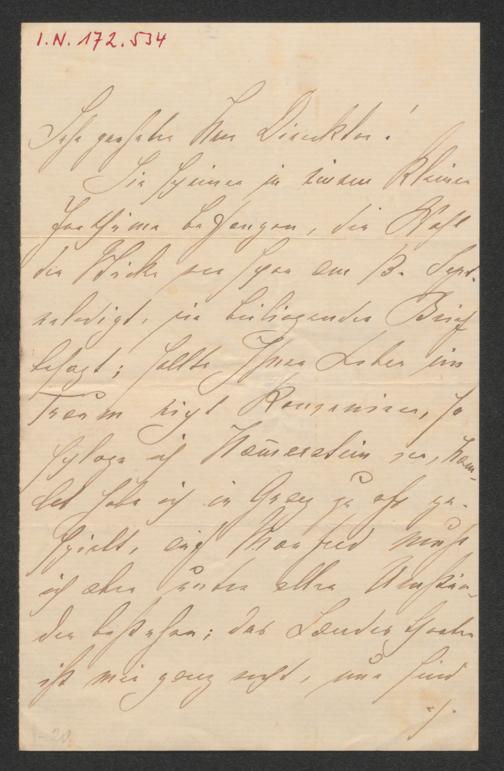 I.N. 172.534
Sehr geehrter Herr Direktor!
Sie scheinen in einem kleinen
Irrthume befangen, die Wahl
der Stücke war schon am 13. Sept.
erledigt, wie beiliegender Brief
besagt; sollte Ihnen Leben ein
Traum nicht konveniren, so
schlage ich Hammerstein vor, Ham-
let habe ich in Graz zu oft ge-
spielt, auf Manfred muß
ich aber unter allen Umstän-
den bestehen; das Landestheater
ist mir ganz recht, nur sind